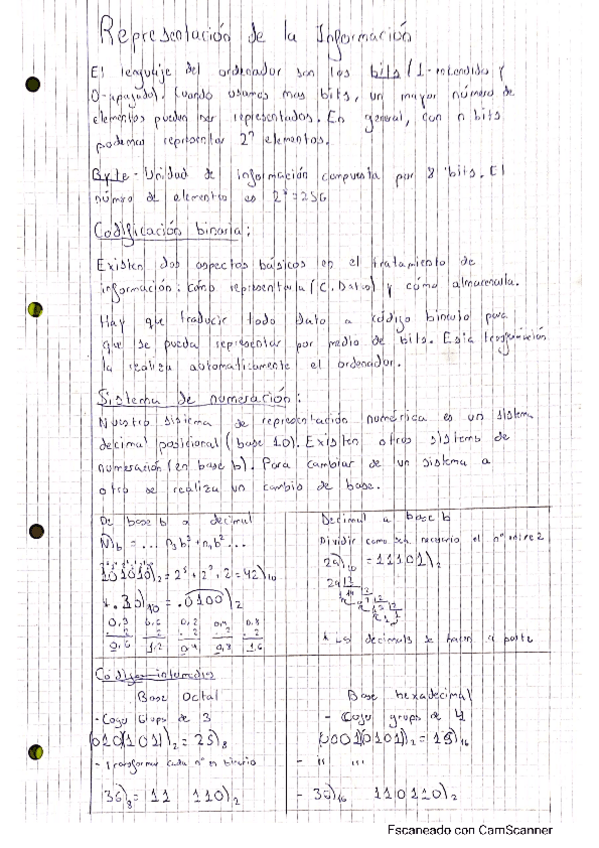 Representación de la Información
El lenguaje del ordenador son los bits (1-encendido y
0-apagado). Cuando usamos mas bits, un mayor número de
elementos pueden ser representados. En general, con n bits
podemos representar 2ⁿ elementos.
Byte - Unidad de información compuesta por 8 bits. El
número de elementos es 2⁸=256
Codificación binaria:
Existen dos aspectos básicos en el tratamiento de
información: cómo representarla (C. Datos) y cómo almacenarla.
Hay que traducir todo dato a código binario para
que se pueda representar por medio de bits. Esta
la realiza automáticamente el ordenador.
Sistema de numeración:
Nuestro sistema de representación numérica es un sistema
decimal posicional (base 10). Existen otros sistems de
numeración (en base b). Para cambiar de un sistema a
otro se realiza un cambio de base.
De base b a decimal
N)b = ... n₃b³ + n₂b² ...
101010)₂ = 2⁵ + 2³ + 2 = 42)₁₀
.3)₁₀ = .0100)₂
0,3 0,6 0,2 0,4 0,8
.2 .2 .2 .2 .2
0,6 1,2 0,4 0,8 1,6
Decimal a base b
Dividir como sea necesario el nº entre 2
29)₁₀ = 11101)₂
29 2
* Los decimals se hacen a parte
Códigos intermedios
Base Octal
- Cojo Grups de 3
(010)(101)₂ = 25)₈
- Transformar cada nº en binario
36)₈ = 11 110)₂
Base hexadecimal
- Cojo grups de 4
(0001)(0101)₂ = 15)₁₆
- " "
- 36)₁₆ 110110)₂
Escaneado con CamScanner